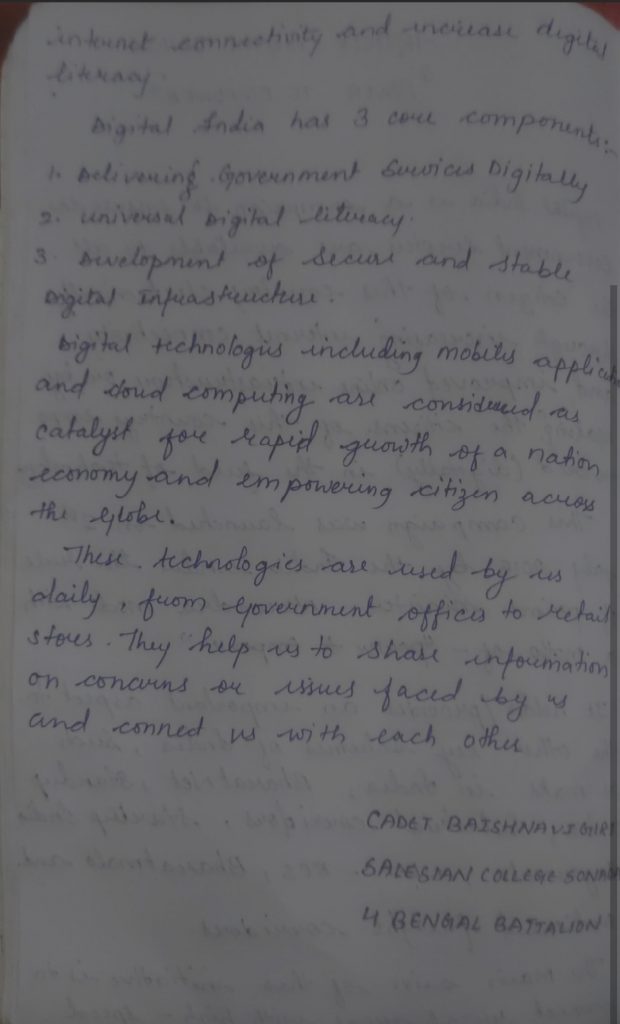 internet connectivity and increase digital
literacy.
Digital India has 3 core components:-
1. Delivering Government Services Digitally
2. Universal Digital literacy.
3 Development of Secure and Stable
Digital Infrastructure.
Digital technologies including mobiles applic
and cloud computing are considered as
catalyst for rapid growth of a nation
economy and empowering citizen across
the globe.
These technologies are used by us
daily, from government offices to retail
stores. They help us to share information
on concerns or issues faced by us
and connect us with each other
CADET BAISHNAVI GIRI
SALESIAN COLLEGE SONA
4 BENGAL BATTALION